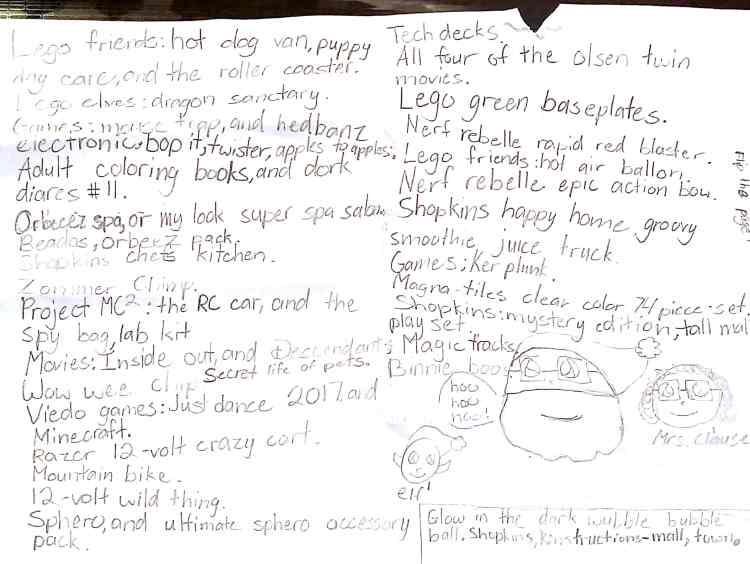 Lego friends: hot dog van, puppy
day care, and the roller coaster.
Lego elves: dragon sanctary.
Games: make tipp, and hedbanz
electronic, bop it, twister, apples to apples.
Adult coloring books, and dork
diares #11.
Orbeez spa, or my look super spa salon
Beados, orbeez pack.
Shopkins chefs kitchen.
Zommer Chimp.
Project MC²: the RC car, and the
spy bag, lab kit
Movies: Inside out, and Descendants
Secret life of pets.
Wow wee Chip
Viedo games: Just dance 2017, and
Minecraft.
Razer 12-volt crazy cart.
Mountain bike.
12-volt wild thing.
Sphero, and ultimate sphero accessory
pack.
Tech decks.
All four of the olsen twin
movies.
Lego green baseplates.
Nerf rebelle rapid red blaster.
Lego friends: hot air ballon.
Nerf rebelle epic action bow.
Shopkins happy home, groovy
smoothie, juice truck.
Games; Ker plunk.
Magna-tiles clear color 74 piece-set.
Shopkins: mystery edition, tall mall
play set.
Magic tracks
Binnie boo
hoo
hoo
hoo!
elf
Mrs. Clause
Glow in the dark wubble bubble
ball. Shopkins, kinstructions-mall, town.
Flip the page